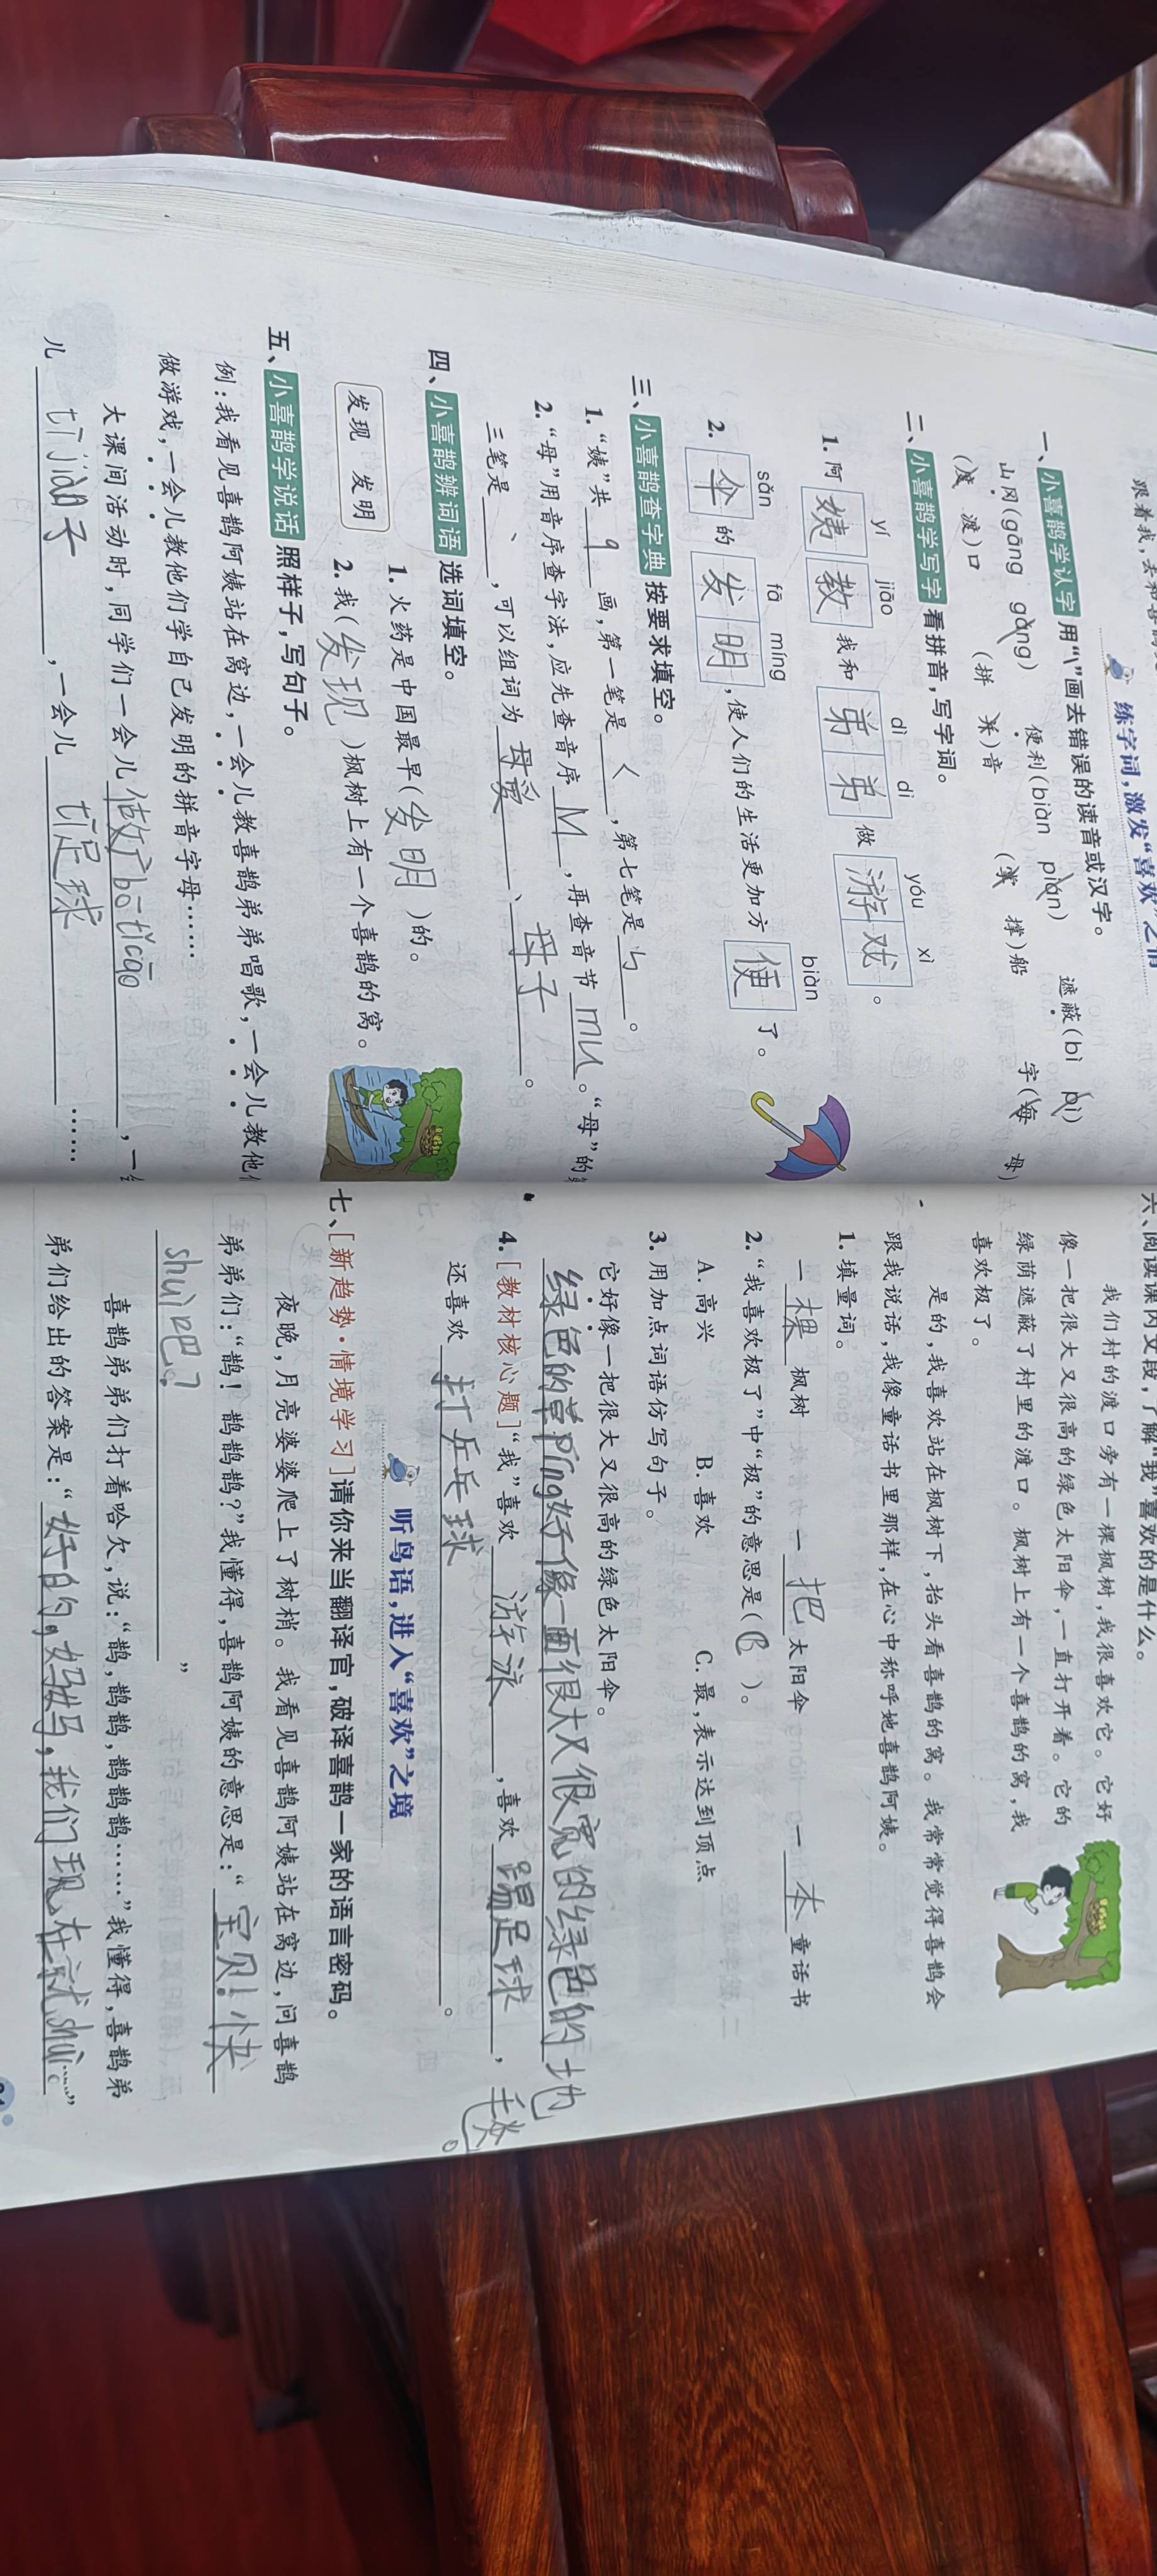 跟着我，去和
练字词，激发“喜欢”之情
一、小喜鹊学认字 用“\”画去错误的读音或汉字。
山冈(gāng gǎng) 便利(biàn pián) 遮蔽(bì pì)
(度 渡)口 (拼 ）音 （ 撑)船 字(每 母)
二、小喜鹊学写字 看拼音，写字词。
yí jiāo dì di yóu xì
1. 阿姨教我和弟弟做游戏。
sǎn fā míng biàn
2. 伞的发明，使人们的生活更加方便了。
三、小喜鹊查字典 按要求填空。
1. “姨”共 9 画，第一笔是 ㄑ ，第七笔是 ㄣ 。
2. “母”用音序查字法，应先查音序 M ，再查音节 mu 。“母”的第
三笔是 丶 ，可以组词为 母爱 、 母子 。
四、小喜鹊辨词语 选词填空。
发现 发明
1. 火药是中国最早(发明)的。
2. 我(发现)枫树上有一个喜鹊的窝。
五、小喜鹊学说话 照样子，写句子。
例：我看见喜鹊阿姨站在窝边，一会儿教喜鹊弟弟唱歌，一会儿教他们
做游戏，一会儿教他们学自己发明的拼音字母……
大课间活动时，同学们一会儿做广bō tǐ cāo，一会
儿 tī jiàn子 ，一会儿 tī足球 ……
六、阅读课内文段，了解“我”喜欢的是什么。
我们村的渡口旁有一棵枫树，我很喜欢它。它好
像一把很大又很高的绿色太阳伞，一直打开着。它的
绿荫遮蔽了村里的渡口。枫树上有一个喜鹊的窝，我
喜欢极了。
是的，我喜欢站在枫树下，抬头看喜鹊的窝。我常常觉得喜鹊会
跟我说话，我像童话书里那样，在心中称呼她喜鹊阿姨。
1. 填量词。
一 棵 枫树 一 把 太阳伞 一 本 童话书
2. “我喜欢极了”中“极”的意思是( B )。
A. 高兴 B. 喜欢 C. 最，表示达到顶点
3. 用加点词语仿写句子。
它好像一把很大又很高的绿色太阳伞。
绿色的草píng好像一面很大又很宽的绿色的地
毯。
4. [教材核心题]“我”喜欢 游泳 ，喜欢 踢足球 ，
还喜欢 打乒乓球 。
听鸟语，进入“喜欢”之境
七、[新趋势·情境学习]请你来当翻译官，破译喜鹊一家的语言密码。
夜晚，月亮婆婆爬上了树梢。我看见喜鹊阿姨站在窝边，问喜鹊
弟弟们：“鹊！鹊鹊鹊？”我懂得，喜鹊阿姨的意思是：“宝贝！快
shuì吧？”
喜鹊弟弟们打着哈欠，说：“鹊，鹊鹊，鹊鹊鹊……”我懂得，喜鹊弟
弟们给出的答案是：“好的，妈妈，我们现在就shuì……。”